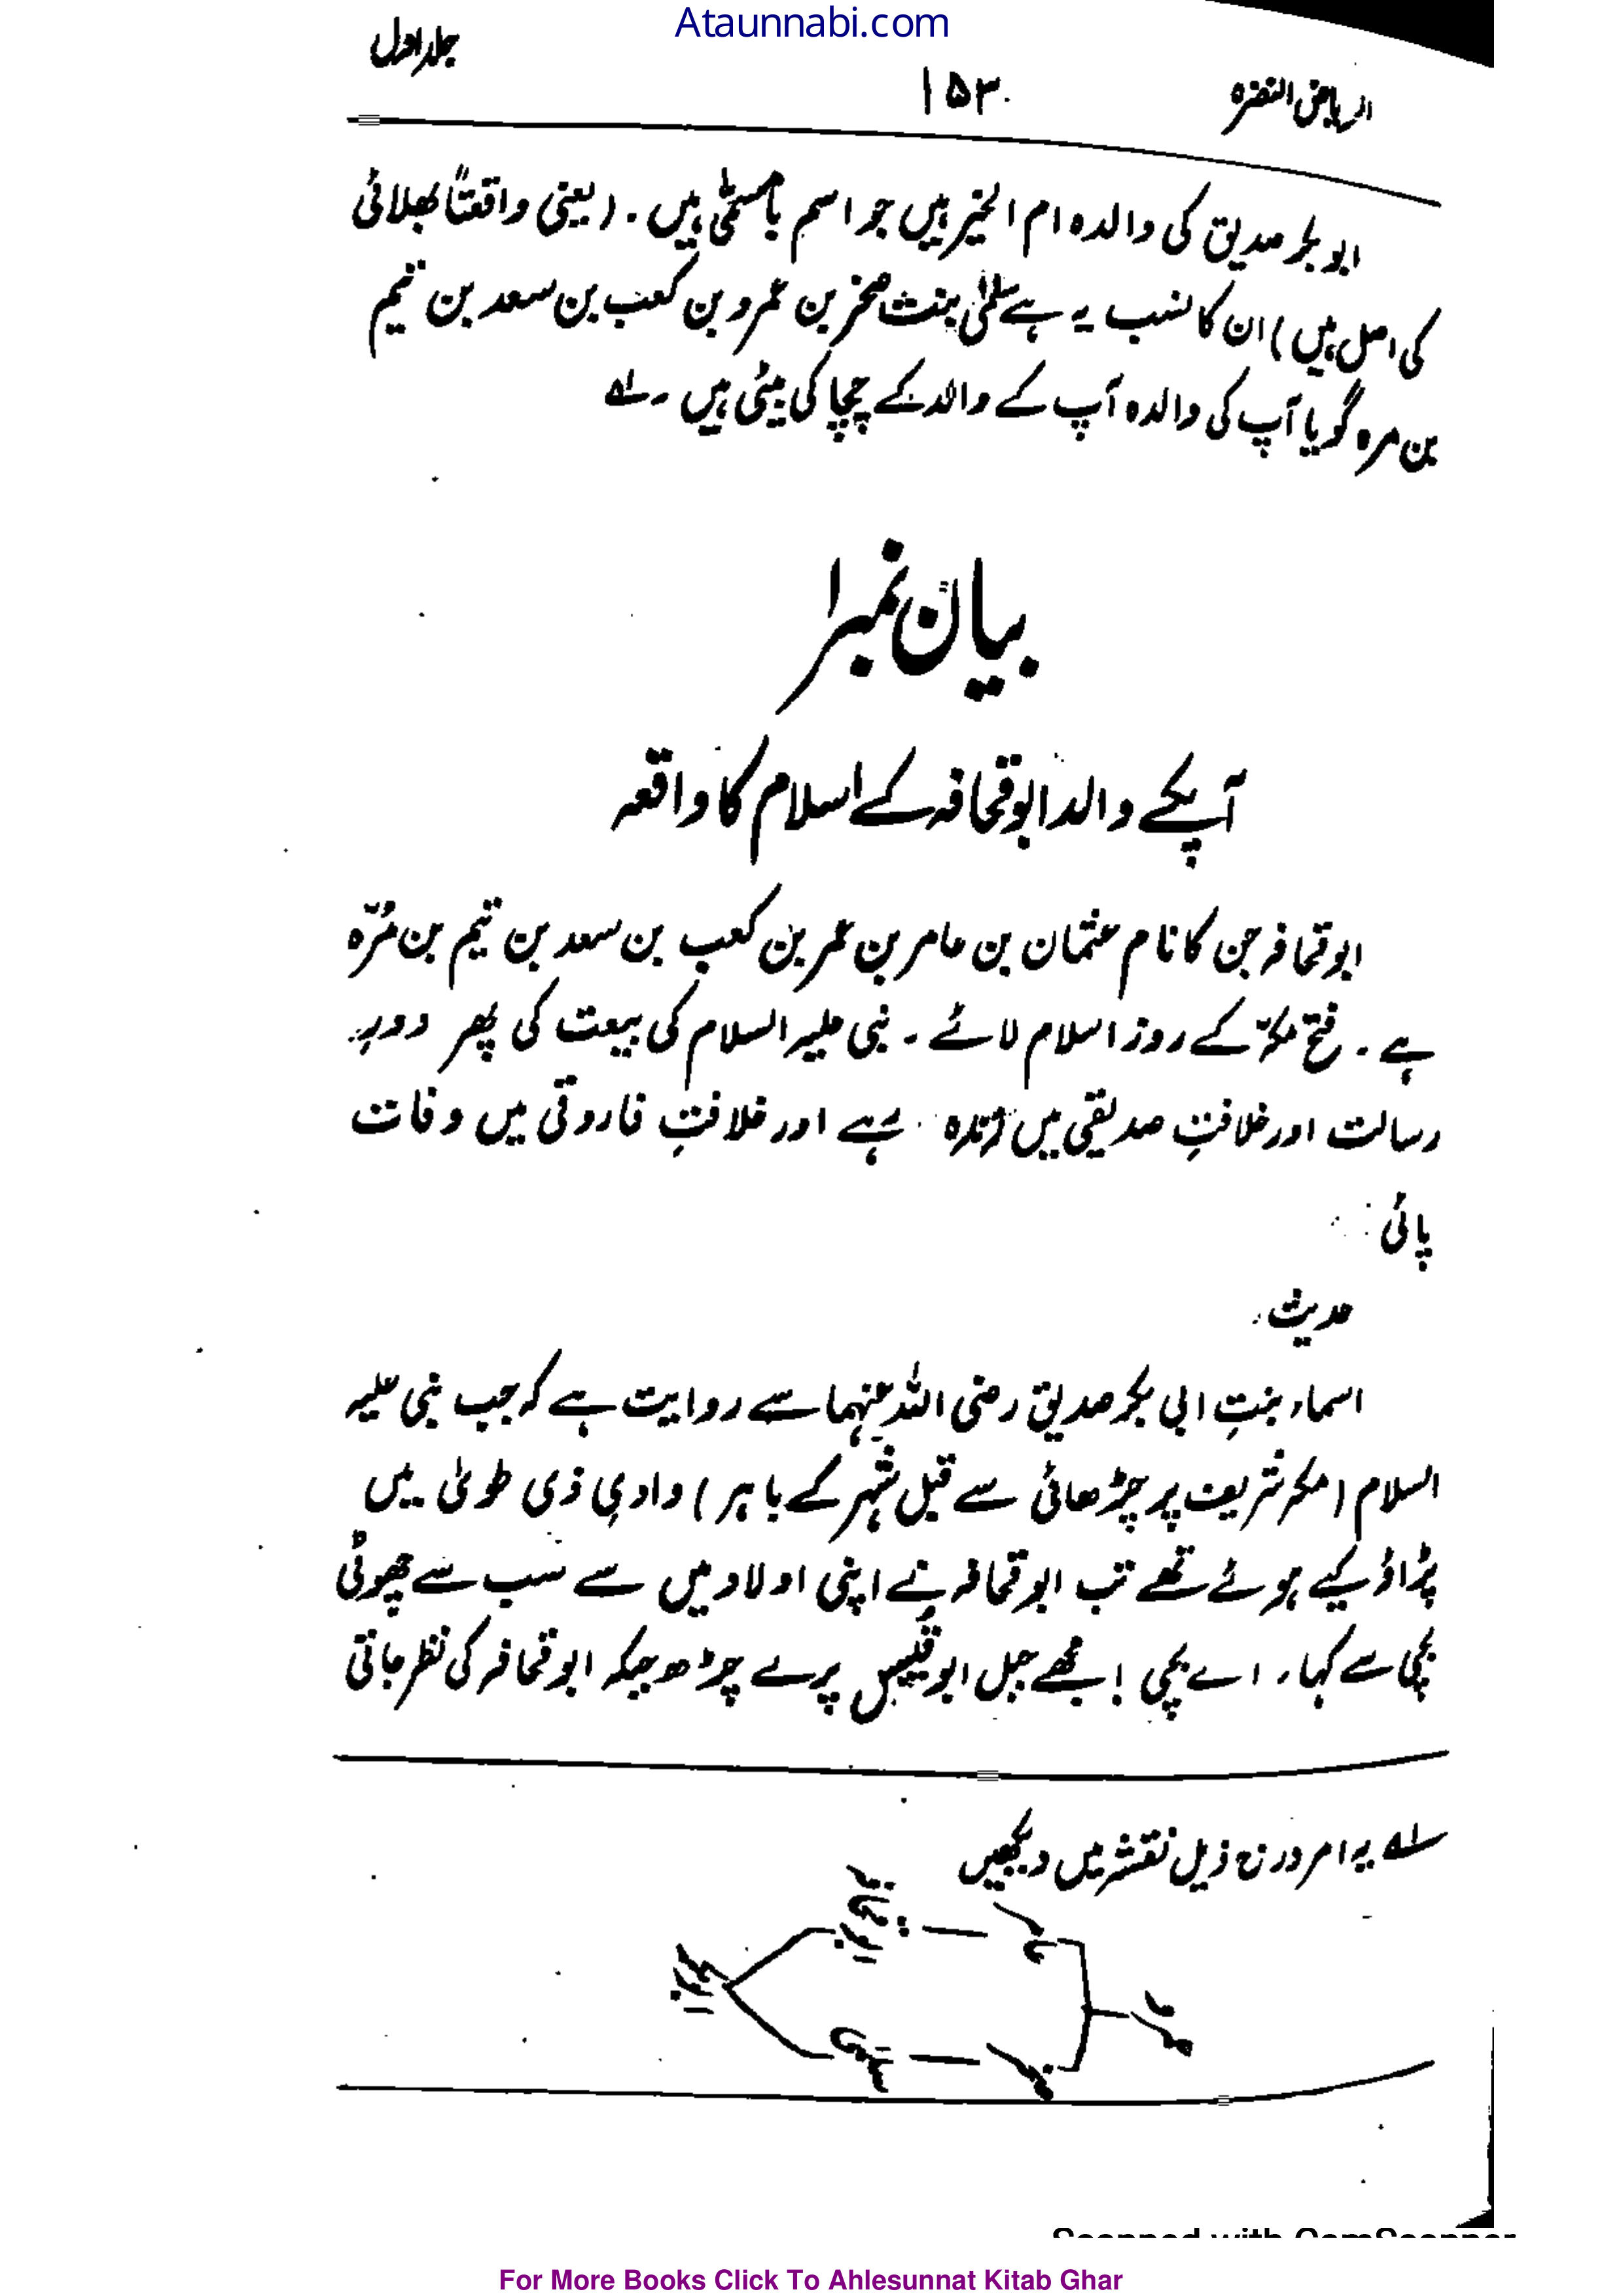 Ataunnabi.com
جلد اول
الریاض النضرہ ۱۵۳
ابو بکر صدیق کی والدہ ام الخیر ہیں جو اسم بامسمّٰی ہیں ۔ (یعنی واقعتاً بھلائی
کی اصل ہیں) ان کا نسب یہ ہے سلمٰی بنت صخر بن عمرو بن کعب بن سعد بن تیم
بن مرہ گویا آپ کی والدہ آپ کے والد کے چچا کی بیٹی ہیں ۔ لہ
بیان نمبر ۱
آپکے والد ابو قحافہ کے اسلام کا واقعہ
ابو قحافہ جن کا نام عثمان بن عامر بن عمر بن کعب بن سعد بن تیم بن مُرّہ
ہے ۔ فتح مکّہ کے روز اسلام لائے ۔ نبی علیہ السلام کی بیعت کی پھر دورِ
رسالت اور خلافتِ صدیقی میں زندہ رہے اور خلافتِ فاروقی میں وفات
پائی
حدیث
اسماء بنتِ ابی بکر صدیق رضی اللہ عنہما سے روایت ہے کہ جب نبی علیہ
السلام (مکہ شریف پر چڑھائی سے قبل شہر کے باہر) وادیِ ذی طویٰ میں
پڑاؤ کیے ہوئے تھے تب ابو قحافہ نے اپنی اولاد میں سے سب سے چھوٹی
بچی سے کہا، اے بچی ! مجھے جبل ابو قبیس پر لے چڑھ جبکہ ابو قحافہ کی نظر جاتی
لہ یہ امر درج ذیل نقشہ میں دیکھیں
عمرو
عامر
ابو قحافہ
صخر
سلمی
ابوبکر
For More Books Click To Ahlesunnat Kitab Ghar